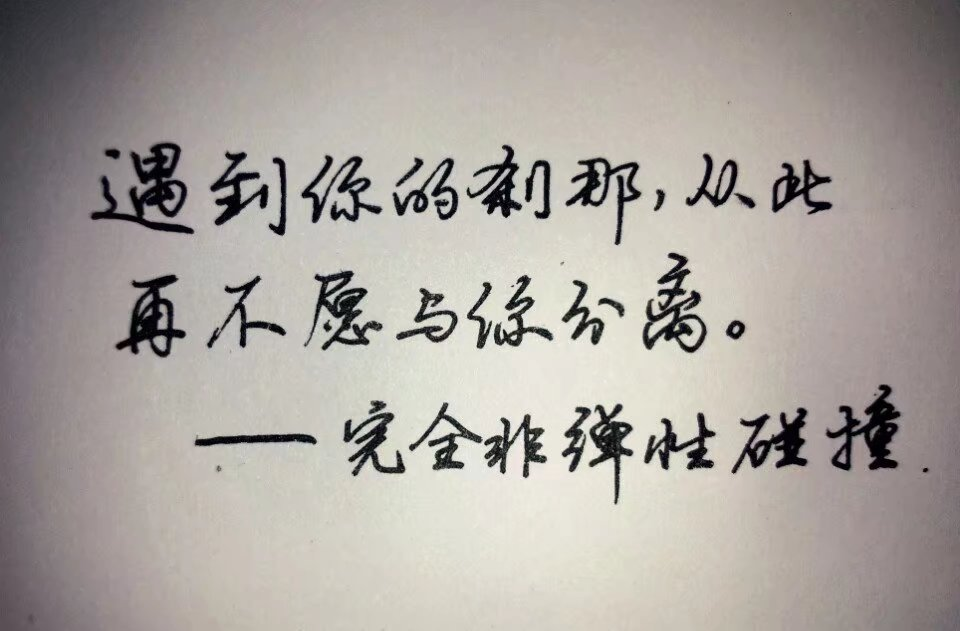 遇到你的刹那,从此
再不愿与你分离。
——完全非弹性碰撞.